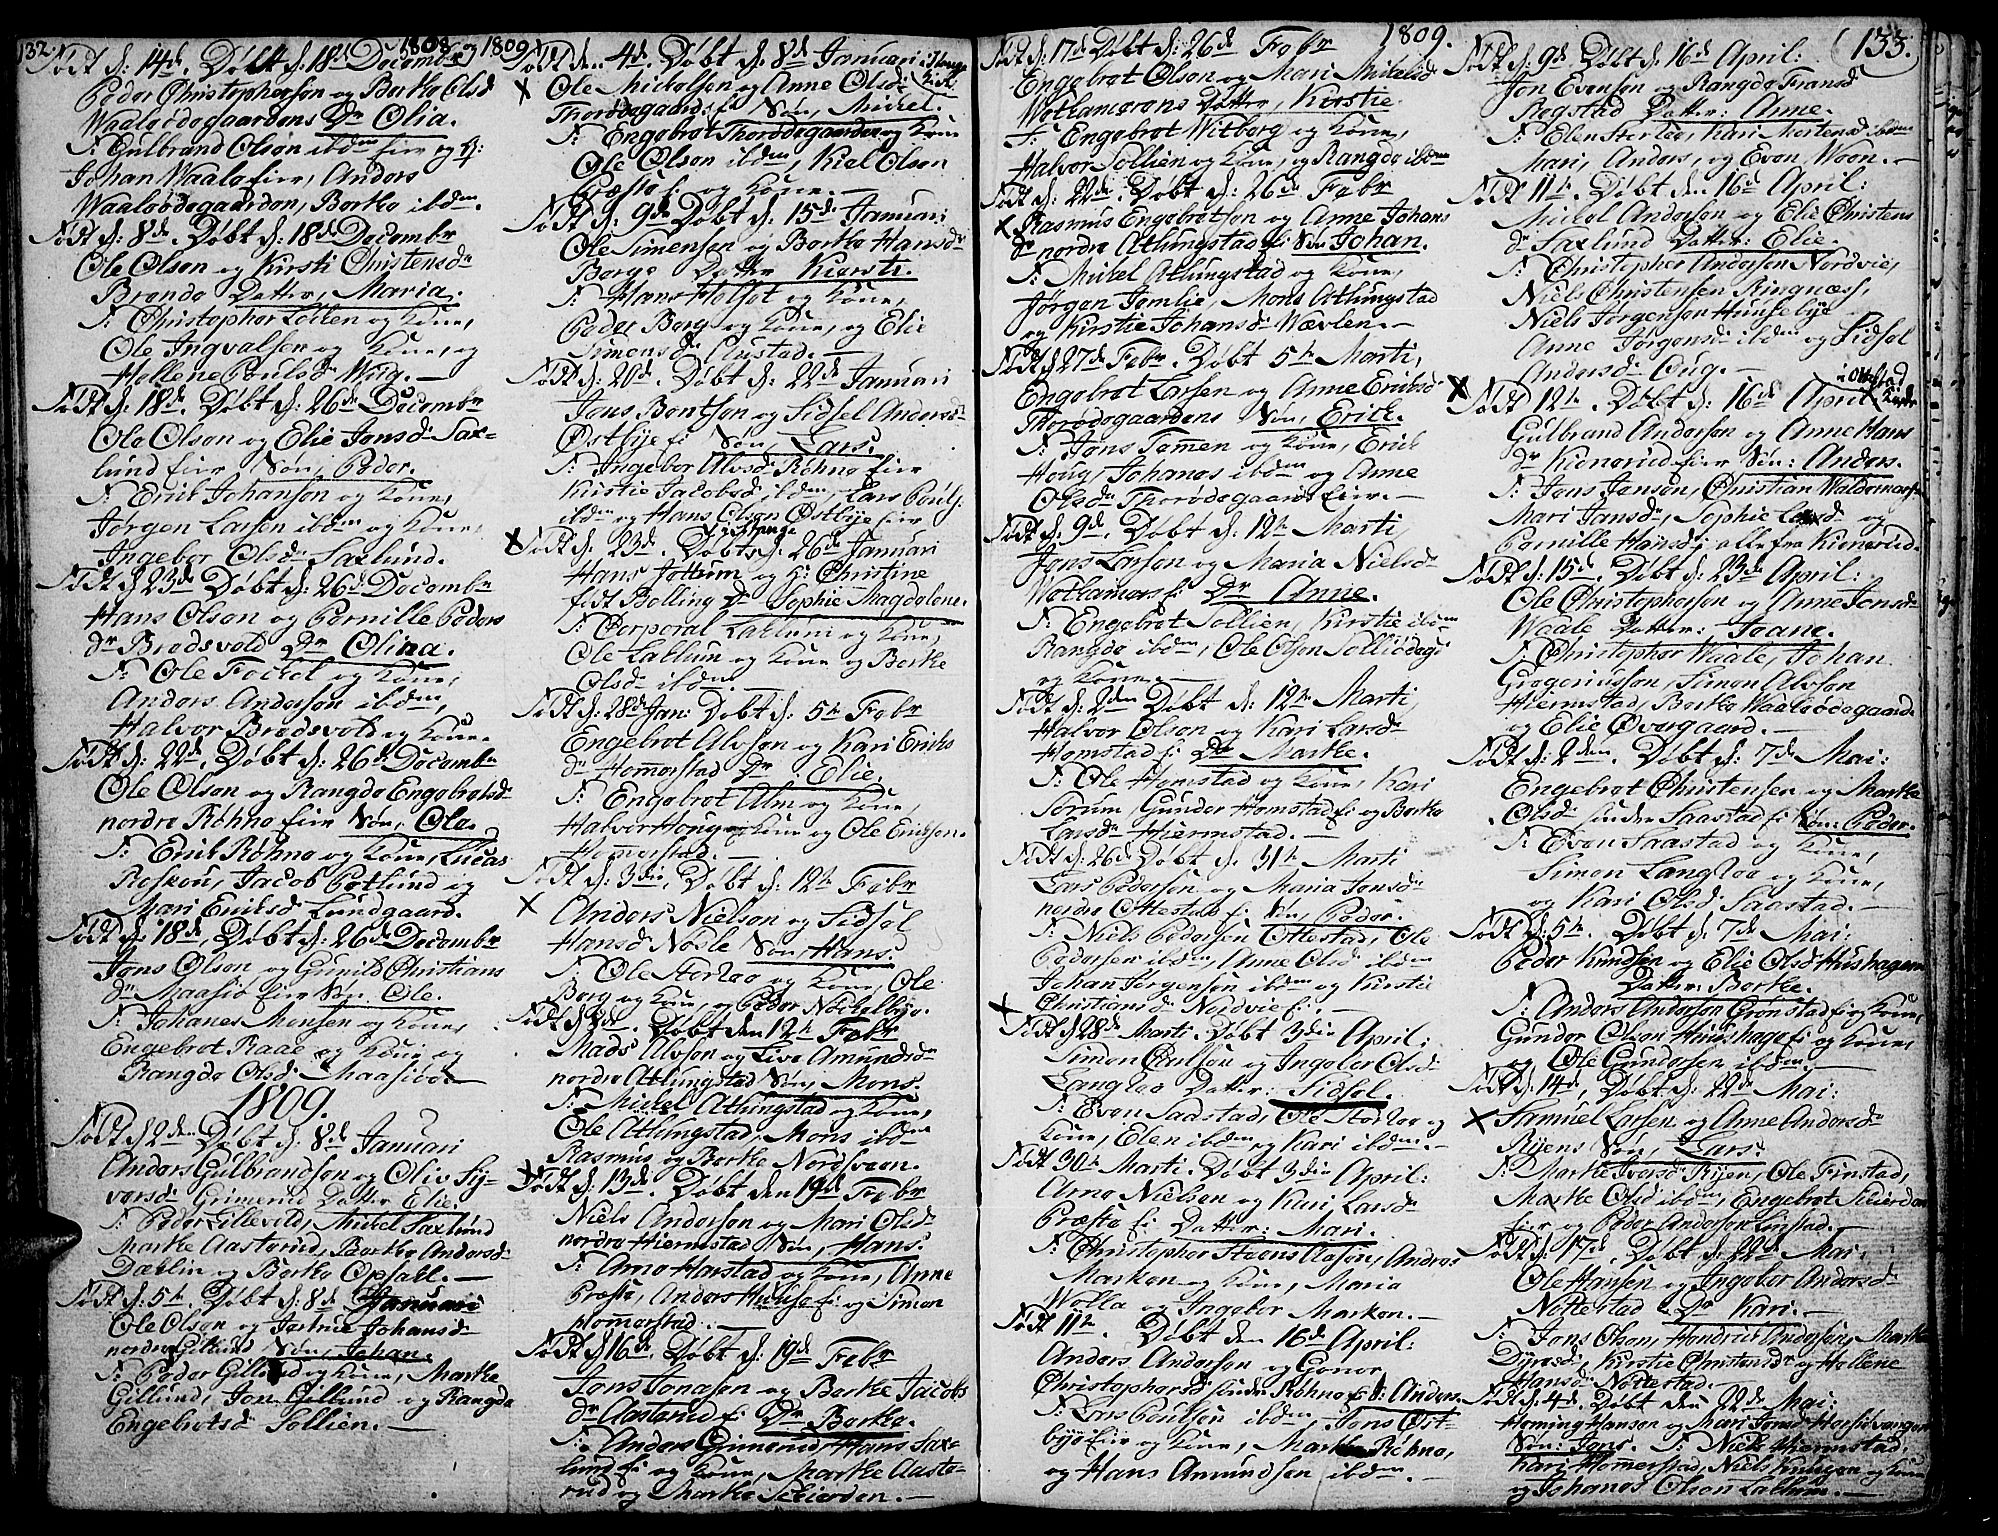 132.
1808 og 1809
Født d: 14de. Døbt d: 18de Decembr
Peder Christophersen og Berthe Olsd
Waaleødegaardens Dr Olia.
F: Gulbrand Olsen ibdm eier og K:
Johan Waale eier, Anders
Waaleødegaarden, Berthe ibdm.
Født d: 8de. Døbt d: 18de Decembr
Ole Olsen og Kirsti Christensdr
Brende Datter, Maria.
F: Christopher Løken og Kone,
Ole Ingvalsen og Kone, og
Hellene Poulsdr Wiig.
Født d: 18de. Døbt d: 26de Decembr
Ole Olsen og Elie Jensdr Sax-
lund eier Søn, Peder.
F: Erik Johansen og Kone,
Jørgen Larsen ibdm og Kone,
Ingebor Olsdr Saxlund.
Født d: 23de Døbt d: 26de Decembr
Hans Olsen og Pernille Peders
dr Bredsvold Dr Olina.
F: Ole og Kone,
Anders Andersen ibdm,
Halvor Bredsvold og Kone.
Født d: 22de. Døbt d: 26de Decembr
Ole Olsen og Rangde Engebretsdr
nordre Røhne eier Søn, Ole.
F: Erik Røhne og Kone, Lucas
Roskou, Jacob Putlund og
Mari Eriksdr Lundgaard.
Født d: 18de, Døbt d: 26de Decembr
Jens Olsen og Gunild Christians
dr Maasiø eier Søn, Ole.
F: Johanes Monsen og Kone,
Engebret Raae og Kone og
Rangde Olsdr Maasiøe
1809.
Født d: 2den Døbt d: 8de Januari
Anders Gulbrandsen og Oliv Sy-
versdr Grimerud Datter Elie.
F: Peder Lillevold, Mickel Saxlund
Marthe Aasterud, Berthe Andersdr
Dæhlin og Berthe Opsall.
Født d: 5te. Døbt d: 8de Januari
Ole Olsen og Jertrue Johansdr
nordre Gillund Søn, Johan.
F: Peder Gillund og Kone, Marthe
Gillund, Jon Gillund og Rangde
Engebretsdr Sollien.
Født den 4de Døbt d: 8de Januari i Stange Kirke
Ole Mickelsen og Anne Olsdr
Thorødegaard ei Søn, Mickel.
F: Engebret Thorødegaarden og Kone
Ole Olsen ibdm, Kiel Olsen
Præste ei og Kone.
Født d: 9de Døbt d: 15de Januari
Ole Simensen og Berthe Hansdr
Borge Datter Kiersti.
F: Hans Helset og Kone,
Peder Borg og Kone, og Elie
Simensdr Austad.
Født d: 20de. Døbt d: 22de Januari
Jens Bentsen og Sidsel Andersdr
Østbye ei Søn, Lars.
F: Ingebor Alvsdr Røhne eier
Kirstie Jacobsdr ibdm, Lars Pouls:
ibdm og Hans Olsen Østbye eier
Født d: 23de. Døbt d: 26de Januari
Hans Jøttum og K: Christine
født Bolling Dr Sophie Magdelene.
F: Corporal Laklum og Kone,
Ole Laklum og Kone og Berthe
Olsdr ibdm.
Født d: 28de Jan: Døbt d: 5te Febr
Engebret Alvsen og Kari Eriks
dr Hommerstad Dr Elie.
F: Engebret Alm og Kone,
Halvor Houg og Kone og Ole Eriksen
Hommerstad.
Født d: 3die, Døbt d: 12te Febr
Anders Nielsen og Sidsel
Hansdr Nøsle Søn Hans.
F: Ole Storloe og Kone, Ole
Borg og Kone, og Peder Nøckelbye.
Født d: 8de. Døbt den 12te Febr
Mads Alvsen og Live Amundsdr
nordre Athlungstad Søn, Mons.
F: Mickel Athlungstad og Kone,
Ole Athlungstad, Mons ibdm
Rasmus og Berthe Nordsveen.
Født d: 13de. Døbt den 19de Febr
Niels Andersen og Mari Olsdr
nordre Hiermstad Søn, Hans
F: Arne Harstad og Kone, Anne
Præste, Anders Hunse ei og Simen
Hommerstad.
Født d: 16de. Døbt d: 19de Febr
Jens Jensen og Berthe Jacobs
dr Aasterud ei Dr Berthe.
F: Anders Grimerud, Hans Sax-
lund ei og Kone, Marthe Aaste-
rud og Marthe Seierden.
1809.
Født d: 17de Døbt d: 26de Febr
Engebret Olsen og Mari Mickelsdr
Wolhamerens Datter, Kirstie.
F: Engebret Witberg og Kone,
Halvor Sollien og Kone, og Rangde ibdm
Født d: 22de. Døbt d: 26de Febr
Rasmus Engebretsen og Anne Johans
dr nordre Athlungstad ei Søn Johan.
F: Mickel Athlungstad og Kone,
Jørgen Jemlie, Mons Athlungstad
og Kirstie Johansdr Wævlen.
Født d: 27de Febr. Døbt 5te Marti,
Engebret Larsen og Anne Eriksdr
Thorødegaardens Søn, Erick.
F: Jens Tommen og Kone, Erik
Houg, Johanes ibdm og Anne
Olsdr Thorødegaards eier.
Født d: 9de. Døbt d: 12te Marti,
Jens Larsen og Maria Nielsdr
Wolhamers ei Dr Anne.
F: Engebret Sollien, Kirstie ibdm
Rangde ibdm, Ole Olsen Solliødeg:
og Kone.
Født d: 2den Døbt d: 12te Marti,
Halvor Olsen og Kari Larsdr
Hemstad ei Dr Marthe.
F: Ole Hemstad og Kone, Kari
Sørum, Gunder Hemstad ei og Berthe
Larsdr Hiermstad.
Født d: 26de Døbt d: 31te Marti
Lars Pedersen og Maria Jensdr
nordre Ottestad ei Søn, Peder.
F: Niels Pedersen Ottestad, Ole
Pedersen ibdm, Anne Olsdr ibdm
Johan Jørgensen ibdm og Kirstie
Christiansdr Nordvie ei.
Født d: 28de Marti. Døbt 3die April:
Simen Poulsen og Ingeber Olsdr
Langloe Datter: Sidsel.
F: Even Saastad, Ole Storloe og
Kone, Elen ibdm og Kari ibdm.
Født 30te Marti. Døbt 3die April:
Arne Nielsen og Kari Larsdr
Præste ei Datter: Mari.
F: Christopher Steens Olesen, Andres
Marken og Kone, Maria
Wolla og Ingebor Marken.
Født 11te. Døbt den 16de April:
Anders Andersen og Goner
Christophersdr søndre Røhne ei S: Anders.
F: Lars Poulsen ibdm Jens Øst-
bye eier og Kone, Marthe Røhne,
og Hans Amundsen ibdm.
133.
Født d: 9de. Døbt d: 16de April:
Jon Evensen og Rangde Fransdr
Rogstad Datter: Anne
F: Elen Storloe, Kari Mortensdr ibdm
Mari, Anders, og Even, Woen.
Født 11te. Døbt den 16de April:
Mickel Andersen og Elie Christens
dr Saxlund Datter: Elie.
F: Christopher Andersen Nordvie,
Niels Christensen Ringnæss,
Niels Jørgensen Hunsebye
Anne Jørgensdr ibdm og Sidsel
Andersdr Oug.
Født 12te. Døbt d: 16de April i Ottestad Kirke
Gulbrand Andersen og Anne Hans
dr Kienerud eier Søn: Anders.
F: Jens Jensen, Christian Waldemars:
Mari Jansdr, Sophie Larsdr og
Pernille Hansdr, alle fra Kienerud.
Født d: 15de. Døbt d: 23de April:
Ole Christophersen og Anne Jensdr
Waale Datter: Joane.
F: Christopher Waale, Johan
Gregeriussen, Simen Alvsen
Hiermstad, Berthe Waaleødegaard
og Elie Øvergaard.
Født d: 2den. Døbt d: 7de Mai:
Engebret Christensen og Marthe
Olsdr søndre Saastad ei Søn: Peder.
F: Even Saastad og Kone,
Simen Langloe og Kone,
og Kari Olsdr Saastad.
Født d: 5te. Døbt d: 7de Mai:
Peder Knudsen og Elie Olsdr Hushagen
Datter: Berthe.
F: Anders Andersen Grønstad ei og Kone,
Gunder Olsen Huushage ei og Kone,
og Ole Gundersen ibdm.
Født d: 14de, Døbt d: 22de Mai,
Samuel Larsen og Anne Andersdr
Ryens Søn, Lars.
F: Marthe Iversdr Ryen, Ole Finstad,
Marthe Olsdr ibdm, Engebret Seierden
eier og Peder Andersen Linstad.
Født d: 17de, Døbt d: 22de Mai:
Ole Hansen og Ingebor Andersdr
Nøttestad Dr Kari.
F: Jens Olsen, Hendrik Andersen, Marthe
Dyresdr, Kirstie Christensdr og Hellene
Hansdr Nøttestad.
Født d: 4de, Døbt den 22de Mai:
Heming Hansen og Mari Jensdr
Søn: Jens. F: Niels Hiermstad,
Kari Hommerstad, Niels og Kone
og Johanes Olsen Laklum.